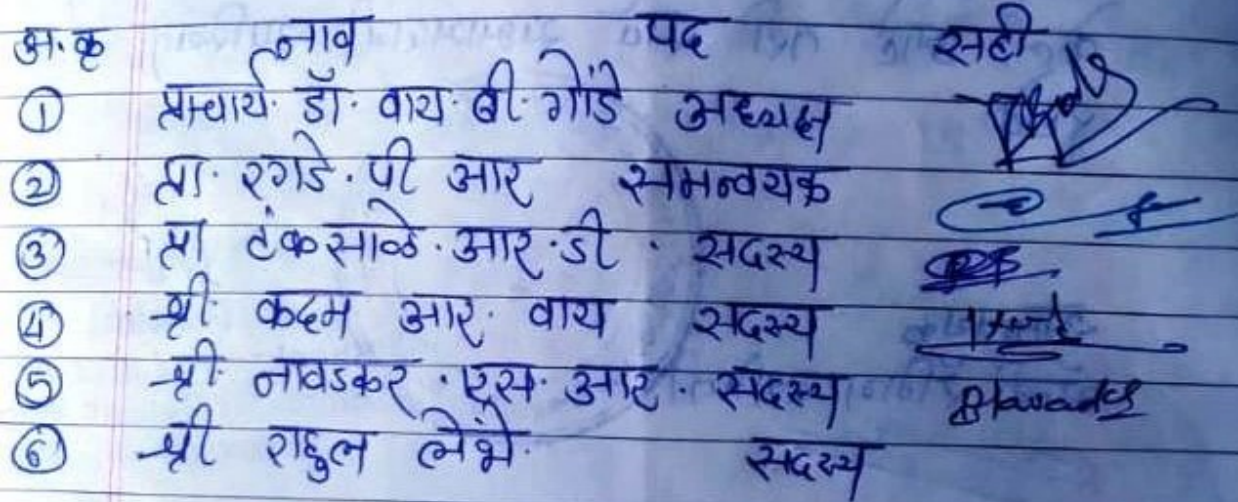 अ.क्र नाव पद सही
① प्राचार्य. डॉ. वाय. बी. गोंडे अध्यक्ष
② प्रा. रगडे. पी आर समन्वयक
③ प्रा टंकसाळे. आर. डी. सदस्य
④ श्री कदम आर. वाय सदस्य
⑤ श्री नावडकर. एस. आर. सदस्य
⑥ श्री राहुल लेंभे. सदस्य